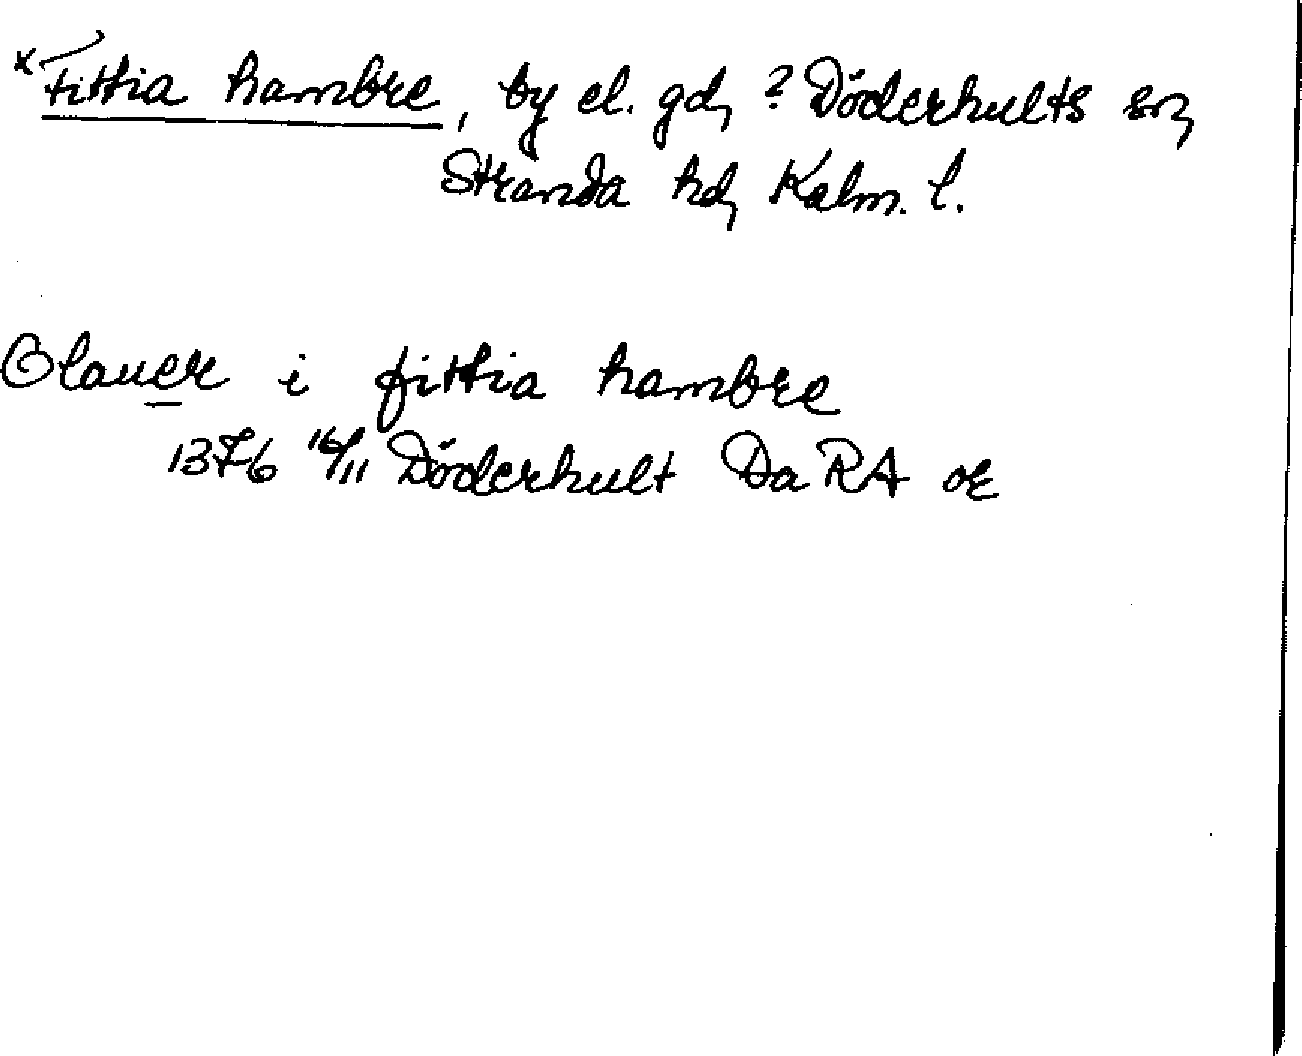 *Fittia hambre, by el. gd, ? Döderhults sn,
Stranda hd, Kalm. l.
Olauer i fittia hambre
1376 16/11 Döderhult Da RA or